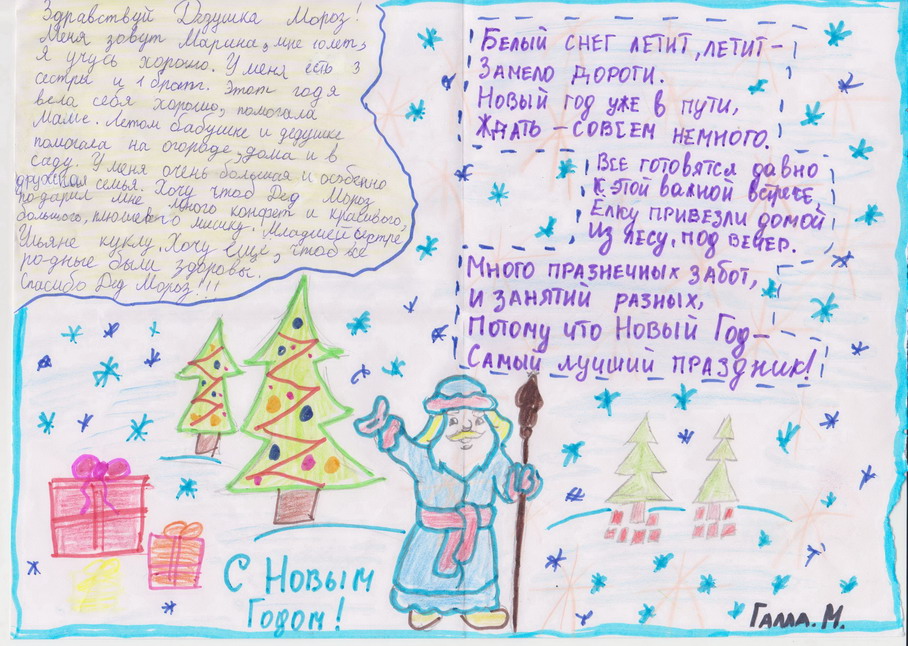 Здравствуй Дедушка Мороз!
Меня зовут Марина, мне 10 лет,
я учусь хорошо. У меня есть 3
сестры и 1 брат. Этот год я
вела себя хорошо, помогала
маме. Летом бабушке и дедушке
помогала на огороде, дома и в
саду. У меня очень большая и особенно
дружная семья. Хочу чтоб Дед Мороз
подарил мне много конфет и красивого,
большого, плюшевого мишку. Младшей сестре
Ульяне куклу. Хочу еще, чтоб все
родные были здоровы.
Спасибо Дед Мороз!!!
Белый снег летит, летит –
Замело дороги.
Новый год уже в пути,
Ждать – совсем немного.
Все готовятся давно
К этой важной встрече,
Ёлку привезли домой
Из лесу, под вечер.
Много празнечных забот,
и занятий разных,
Потому что Новый Год –
Самый лучший праздник!
С Новым
Годом!
Галла. М.